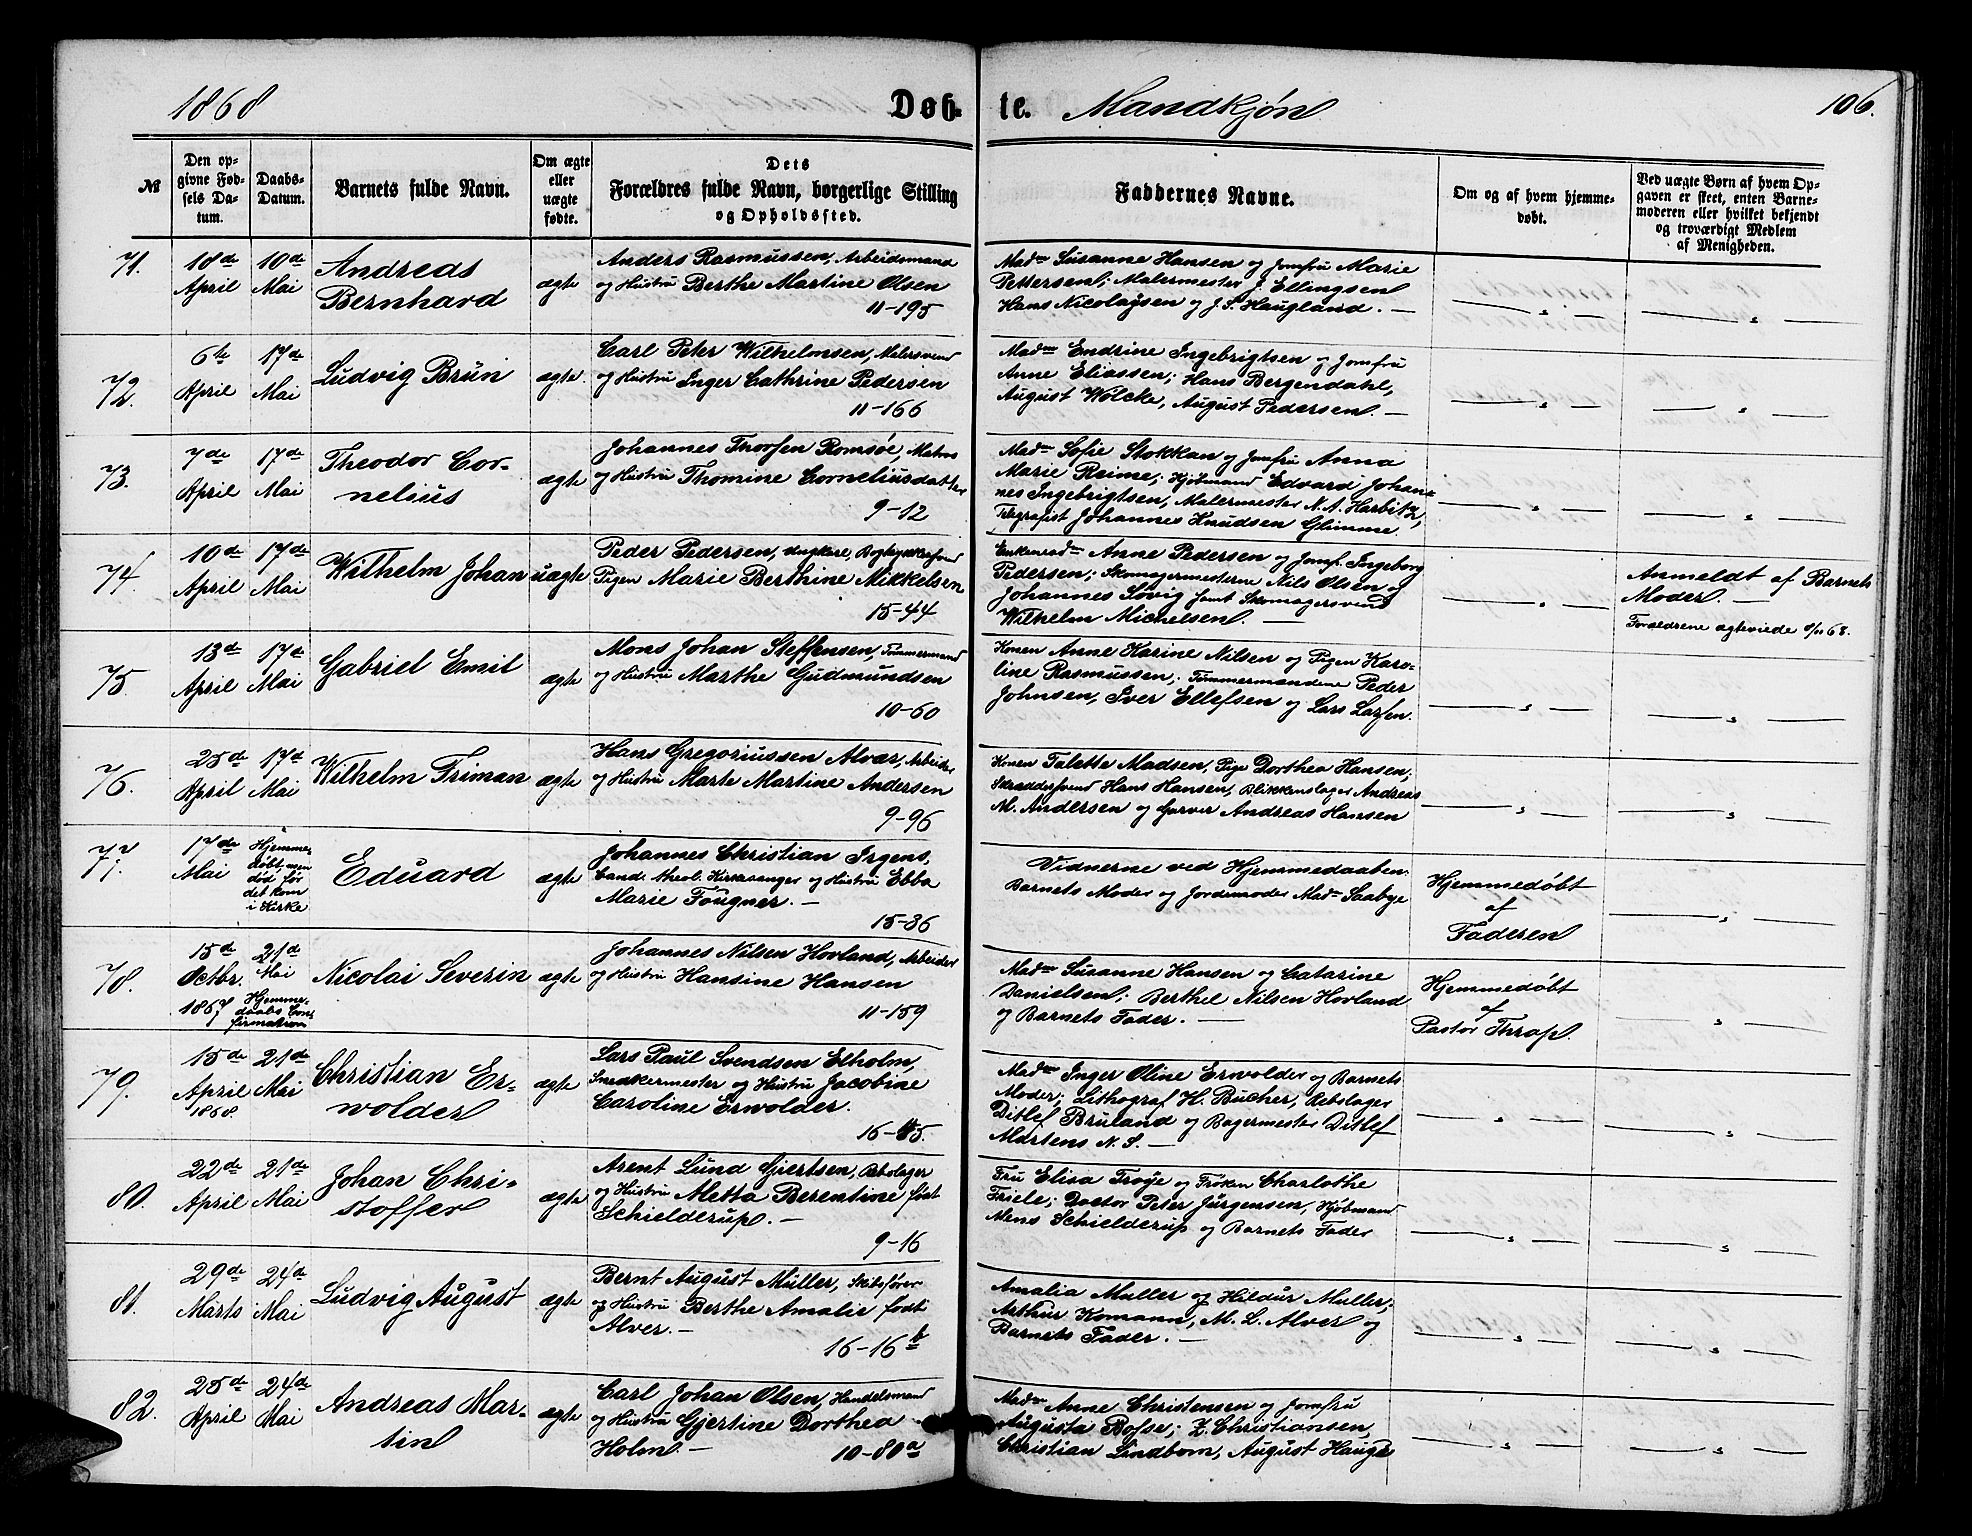 1868
Døb-
te. Mandkjøn
106.
№
Den op-
givne Fød-
sels Da-
tum.
Daabs-
Datum.
Barnets fulde Navn.
Om ægte
eller
uægte
fødte.
Dets
Forældres fulde Navn, borgerlige Stilling
og Opholdssted.
Faddernes Navne.
Om og af hvem hjemme-
døbt.
Ved uægte Børn af hvem Op-
gaven er skeet, enten Barne-
moderen eller hvilket bekjendt
og troværdigt Medlem
af Menigheden.
71.
18de
April
10de
Mai
Andreas
Bernhard
ægte
Anders Rasmussen, Arbeidsmand
og Hustru Berthe Martine Olsen
11-195
Madm Susanne Hansen og Jomfru Marie
Pettersen; Malermester J. Ellingsen
Hans Nicolaysen og J. S. Haugland. —
— " —
— " —
72.
6te
April
17de
Mai
Ludvig Brun
ægte
Carl Peter Wilhelmsen, Malersvend
og Hustru Inger Cathrine Pedersen
11-166
Madm Endrine Ingebrigtsen og Jomfru
Anne Eliassen; Hans Bergendahl,
August Wölcke, August Pedersen. —
— " —
— " —
73.
7de
April
17de
Mai
Theodor Cor-
nelius
ægte
Johannes Thorsen Romsøe, Matros
og Hustru Thomine Corneliusdatter
9-12
Madm Sofie Stokkan og Jomfru Anna
Marie Reime; Kjøbmand Edvard Johan-
nes Ingebrigtsen, Malermester N. A. Harbitz,
Telegrafist Johannes Knudsen Glimme.
— " —
— " —
74.
10de
April
17de
Mai
Wilhelm Johan
uægte
Peder Pedersen, Ungkarl, Bogtrykkersvend
Pigen Marie Berthine Mikkelsen
15-44
Enkemadm Anne Pedersen og Jomf. Ingeborg
Pedersen; Skomagermesterne Nils Olsen og
Johannes Søvig samt Skomagersvend
Wilhelm Michelsen. —
— " —
Anmeldt af Barnets
Moder. —
Forældrene ægteviede 68.
75.
13de
April
17de
Mai
Gabriel Emil
ægte
Mons Johan Steffensen, Tømmermand
og Hustru Marthe Gudmundsen
10-60
Konen Anne Karine Nilsen og Pigen Karo-
line Rasmussen; Tømmermændene Peder
Johnsen, Iver Ellefsen og Lars Larsen.
— " —
— " —
76.
25de
April
17de
Mai
Wilhelm Triman
ægte
Hans Gregoriussen Alvær, Arbeider
og Hustru Marte Martine Andersen
9-96
Konen Talette Madsen, Pige Dorthea Hansen;
Skræddersvend Hans Hansen, Blikkenslager Andreas
M. Andersen og Garver Andreas Hansen
— " —
— " —
77.
17de
Mai
Hjemme-
døbt, men
død før
det kom
i Kirke
Eduard
ægte
Johannes Christian Irgens,
Cand. theol. Kirkesanger og Hustru Ebba
Marie Fougner. —
15-36
Vidnerne ved Hjemmedaaben:
Barnets Moder og Jordemoder Madm Saabye
Hjemmedøbt
af
Faderen
— " —
78.
15de
Octbr.
1867
21de
Mai
Hjemme-
daabs Con-
firmation
Nicolai Severin
ægte
Johannes Nilsen Hovland, Arbeider
og Hustru Hansine Hansen
11-159
Madm Susanne Hansen og Catarine
Danielsen; Berthel Nilsen Hovland
og Barnets Fader. —
Hjemmedøbt
af
Pastor Thrap.
— " —
79.
15de
April
1868.
21de
Mai
Christian Er-
wolder
ægte
Lars Paul Svendsen Elholm,
Snedkermester og Hustru Jacobine
Caroline Erwolder.
Madm Inger Oline Erwolder og Barnets
Moder; Lithograf H. Bucher, Rebslager
Ditlef Bruland og Bagermester Ditlef
Martens N. S. —
— " —
— " —
80.
22de
April
21de
Mai
Johan Chri-
stoffer
ægte
Arent Lund Gjertsen, Rebslager
og Hustru Metta Berentine født
Schielderup. —
9-16
Fru Elisa Troye og Frøken Charlothe
Friele; Doctor Peter Jürgensen, Kjøbmand
Mons Schielderup og Barnets Fader
— " —
— " —
81.
29de
Marts
24de
Mai
Ludvig August
ægte
Bernt August Müller, Skibsfører
og Hustru Berthe Amalie født
Alver. —
16-16b
Amalia Muller og Hildur Muller;
Arthur Komann, M. L. Alver og
Barnets Fader. —
— " —
— " —
82.
25de
April
24de
Mai
Andreas Mar-
tin
ægte
Carl Johan Olsen, Handelsmand
og Hustru Gjertine Dorthea
Holm. —
10-80a
Madm Anne Christensen og Jomfru
Augusta Bosse; Z. Christiansen,
Christian Lindbom, August Hauge
— " —
— " —